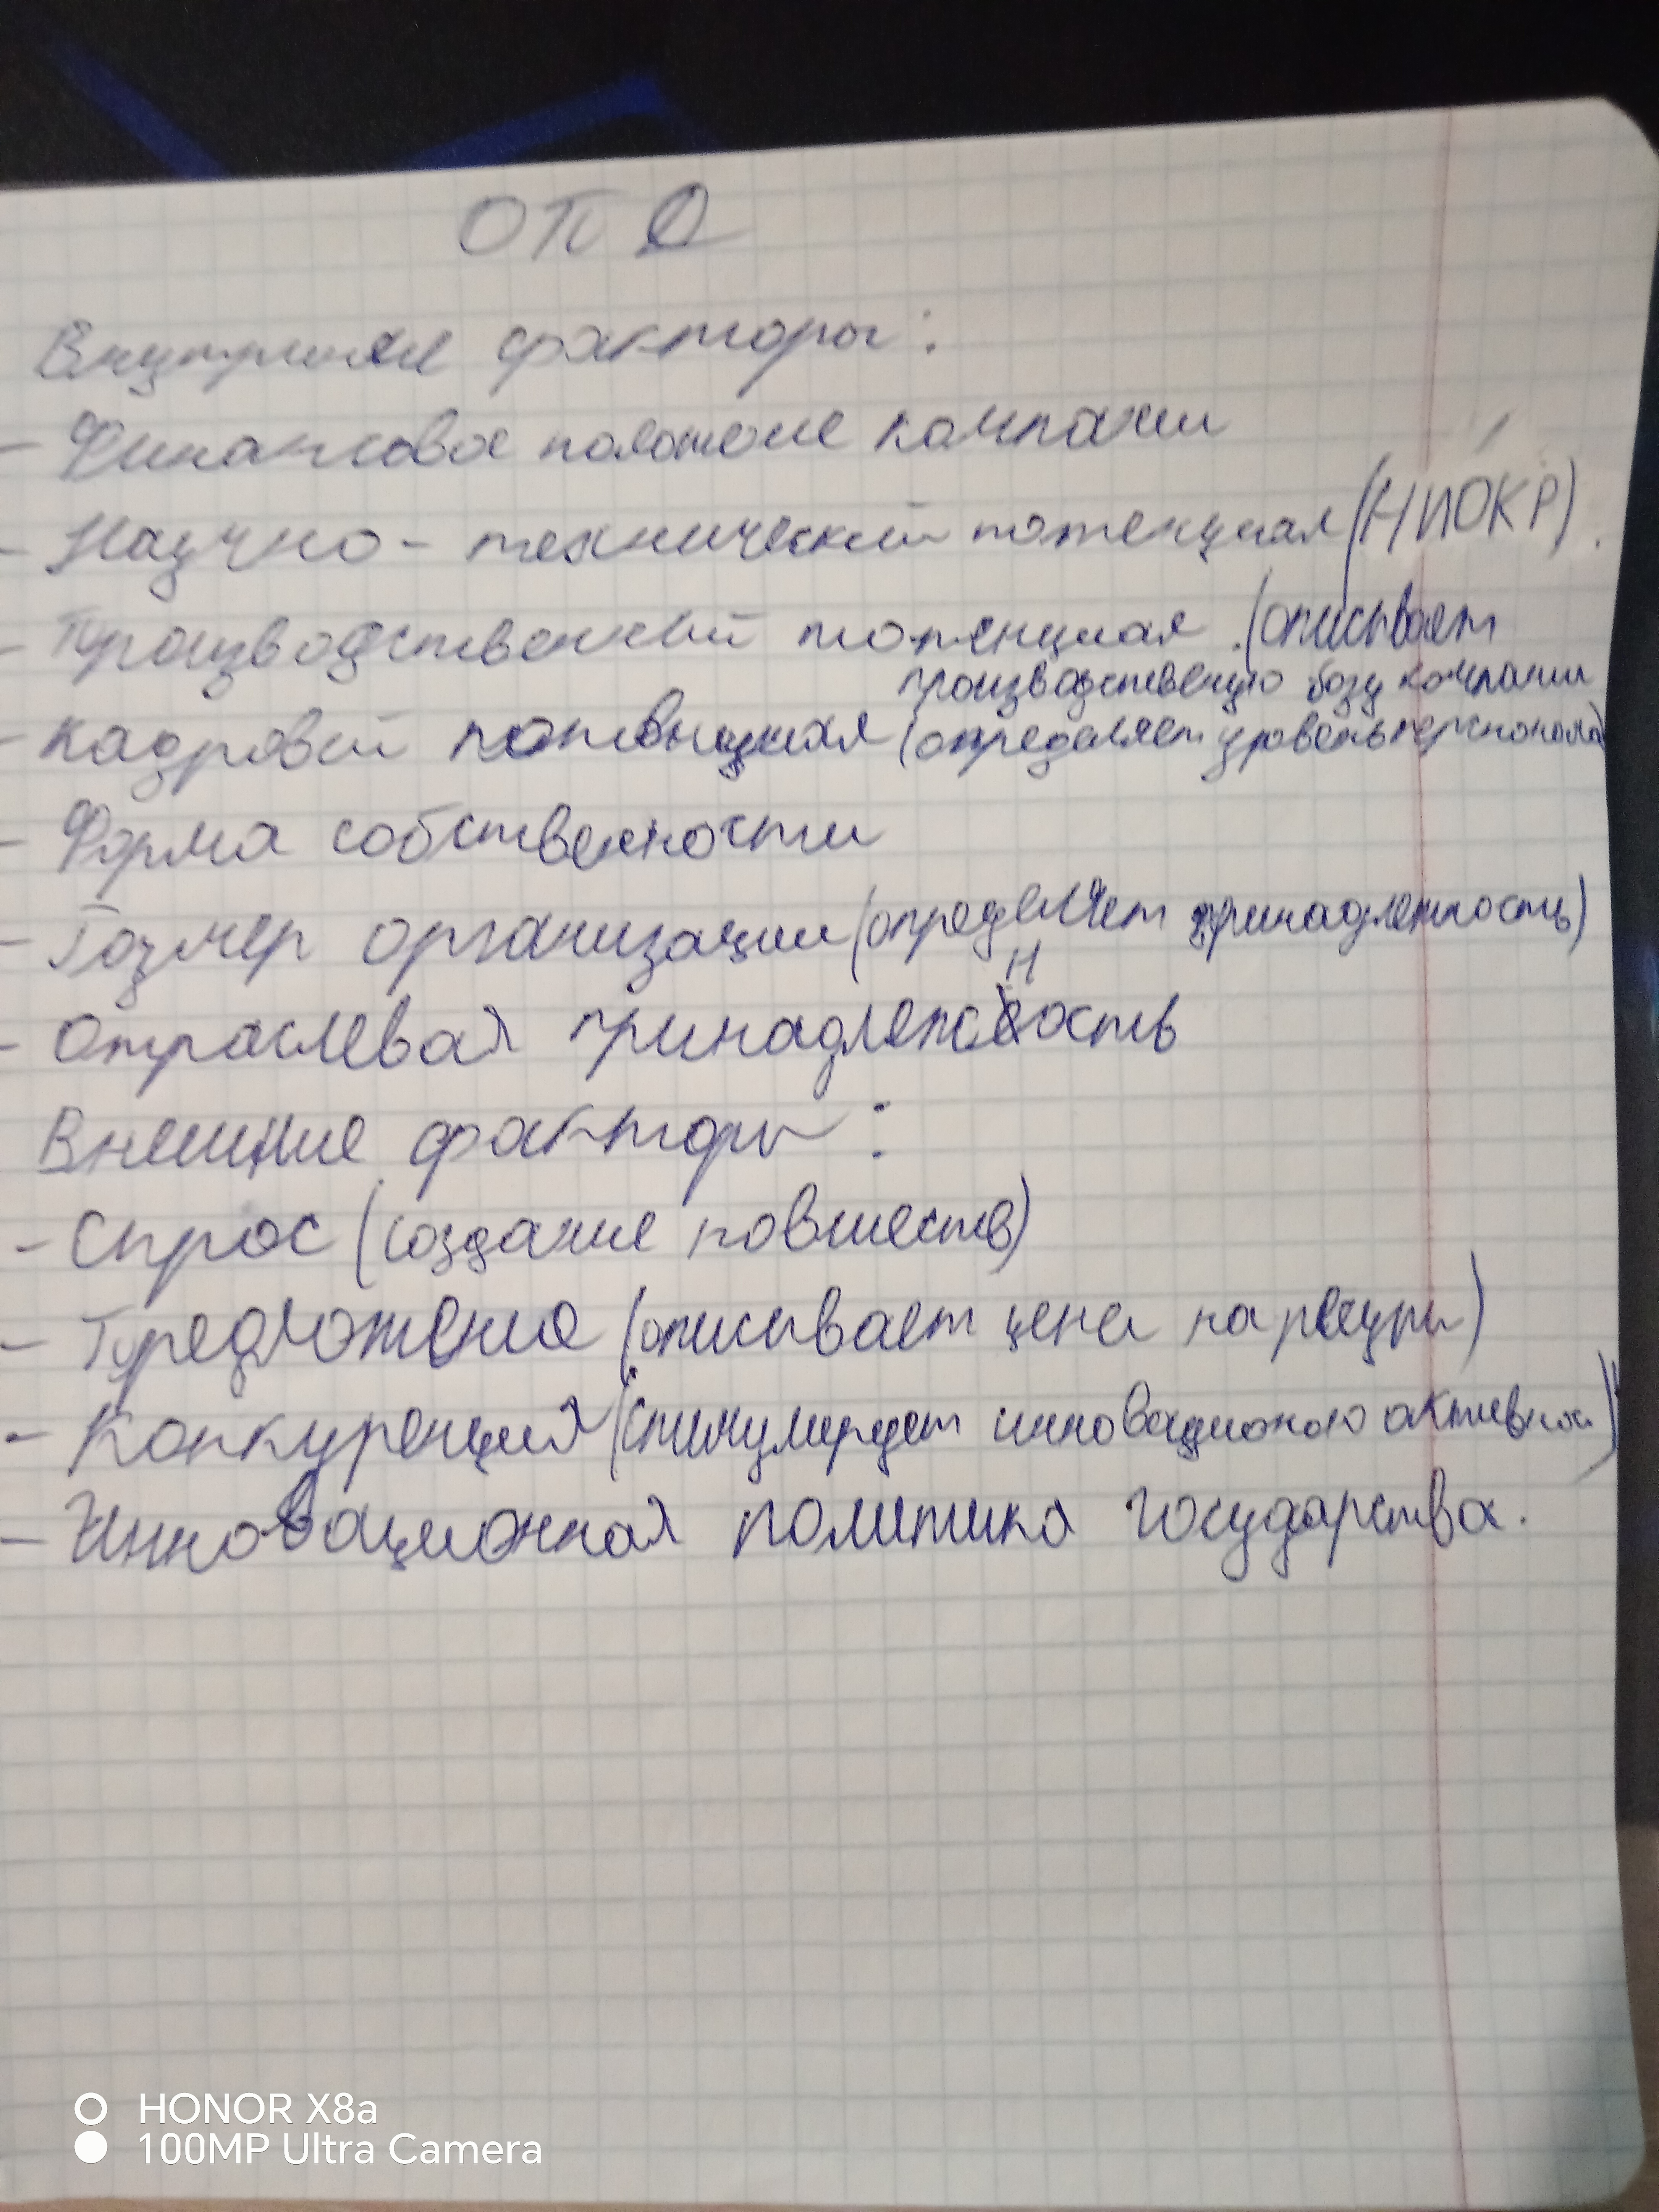 ОПД
Внутрение факторы:
- Финансовое положение компании
- Научно - технический потенциал (НИОКР).
- Производственный потенциал (описывает
производственую базу компании
- Кадровый потенциал (определяет уровень персонала)
- Форма собственности
- Размер организации (определяет принадлежность)
Н
- Отраслевая принадлежность
Внешние факторы:
- Спрос (создание новшеств)
- Предложение (описывает цена на ресурсы)
- Конкуренция (стимулирует инновационою активной)
- Инновационная политика государства.
HONOR X8a
100MP Ultra Camera